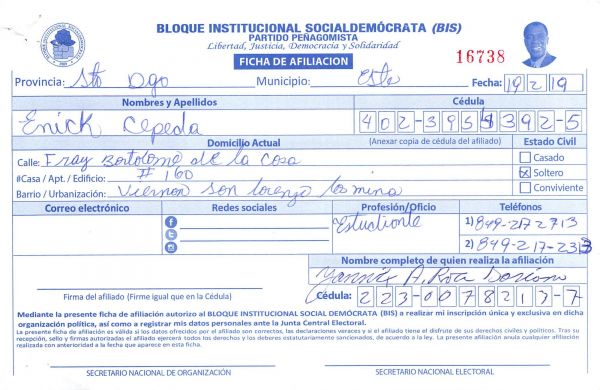 BLOQUE INSTITUCIONAL SOCIALDEMÓCRATA (BIS)
PARTIDO PEÑAGOMISTA
Libertad, Justicia, Democracia y Solidaridad
FICHA DE AFILIACION
16738
Provincia: Sto Dgo Municipio: Este Fecha: 19 2 19
Nombres y Apellidos Cédula
Enick Cepeda 402-3954392-5
Domicilio Actual (Anexar copia de cédula del afiliado) Estado Civil
Calle: Fray Bortolome de la Cosa Casado
#Casa / Apt. / Edificio: # 160 Soltero
Barrio / Urbanización: Viernon son lorenzo los mina Conviviente
Correo electrónico Redes sociales Profesión/Oficio Teléfonos
Estudionte 1) 849-217-2713
2) 849-217-2313
Nombre completo de quien realiza la afiliación
Yannix A. Rota
Firma del afiliado (Firme igual que en la Cédula) Cédula: 223-0078213-7
Mediante la presente ficha de afiliación autorizo al BLOQUE INSTITUCIONAL SOCIAL DEMÓCRATA (BIS) a realizar mi inscripción única y exclusiva en dicha
organización política, así como a registrar mis datos personales ante la Junta Central Electoral.
La presente ficha de afiliación es válida si los datos ofrecidos por el afiliado son correctos, las declaraciones veraces y si el afiliado tiene el disfrute de sus derechos civiles y políticos. Tras su
recepción, sello y firmas autorizadas el afiliado ejercerá todos los derechos y los deberes estatutariamente sancionados, de acuerdo a la ley. La presente afiliación anula cualquier afiliación
realizada con anterioridad a la fecha que aparece en esta ficha.
SECRETARIO NACIONAL DE ORGANIZACIÓN SECRETARIO NACIONAL ELECTORAL